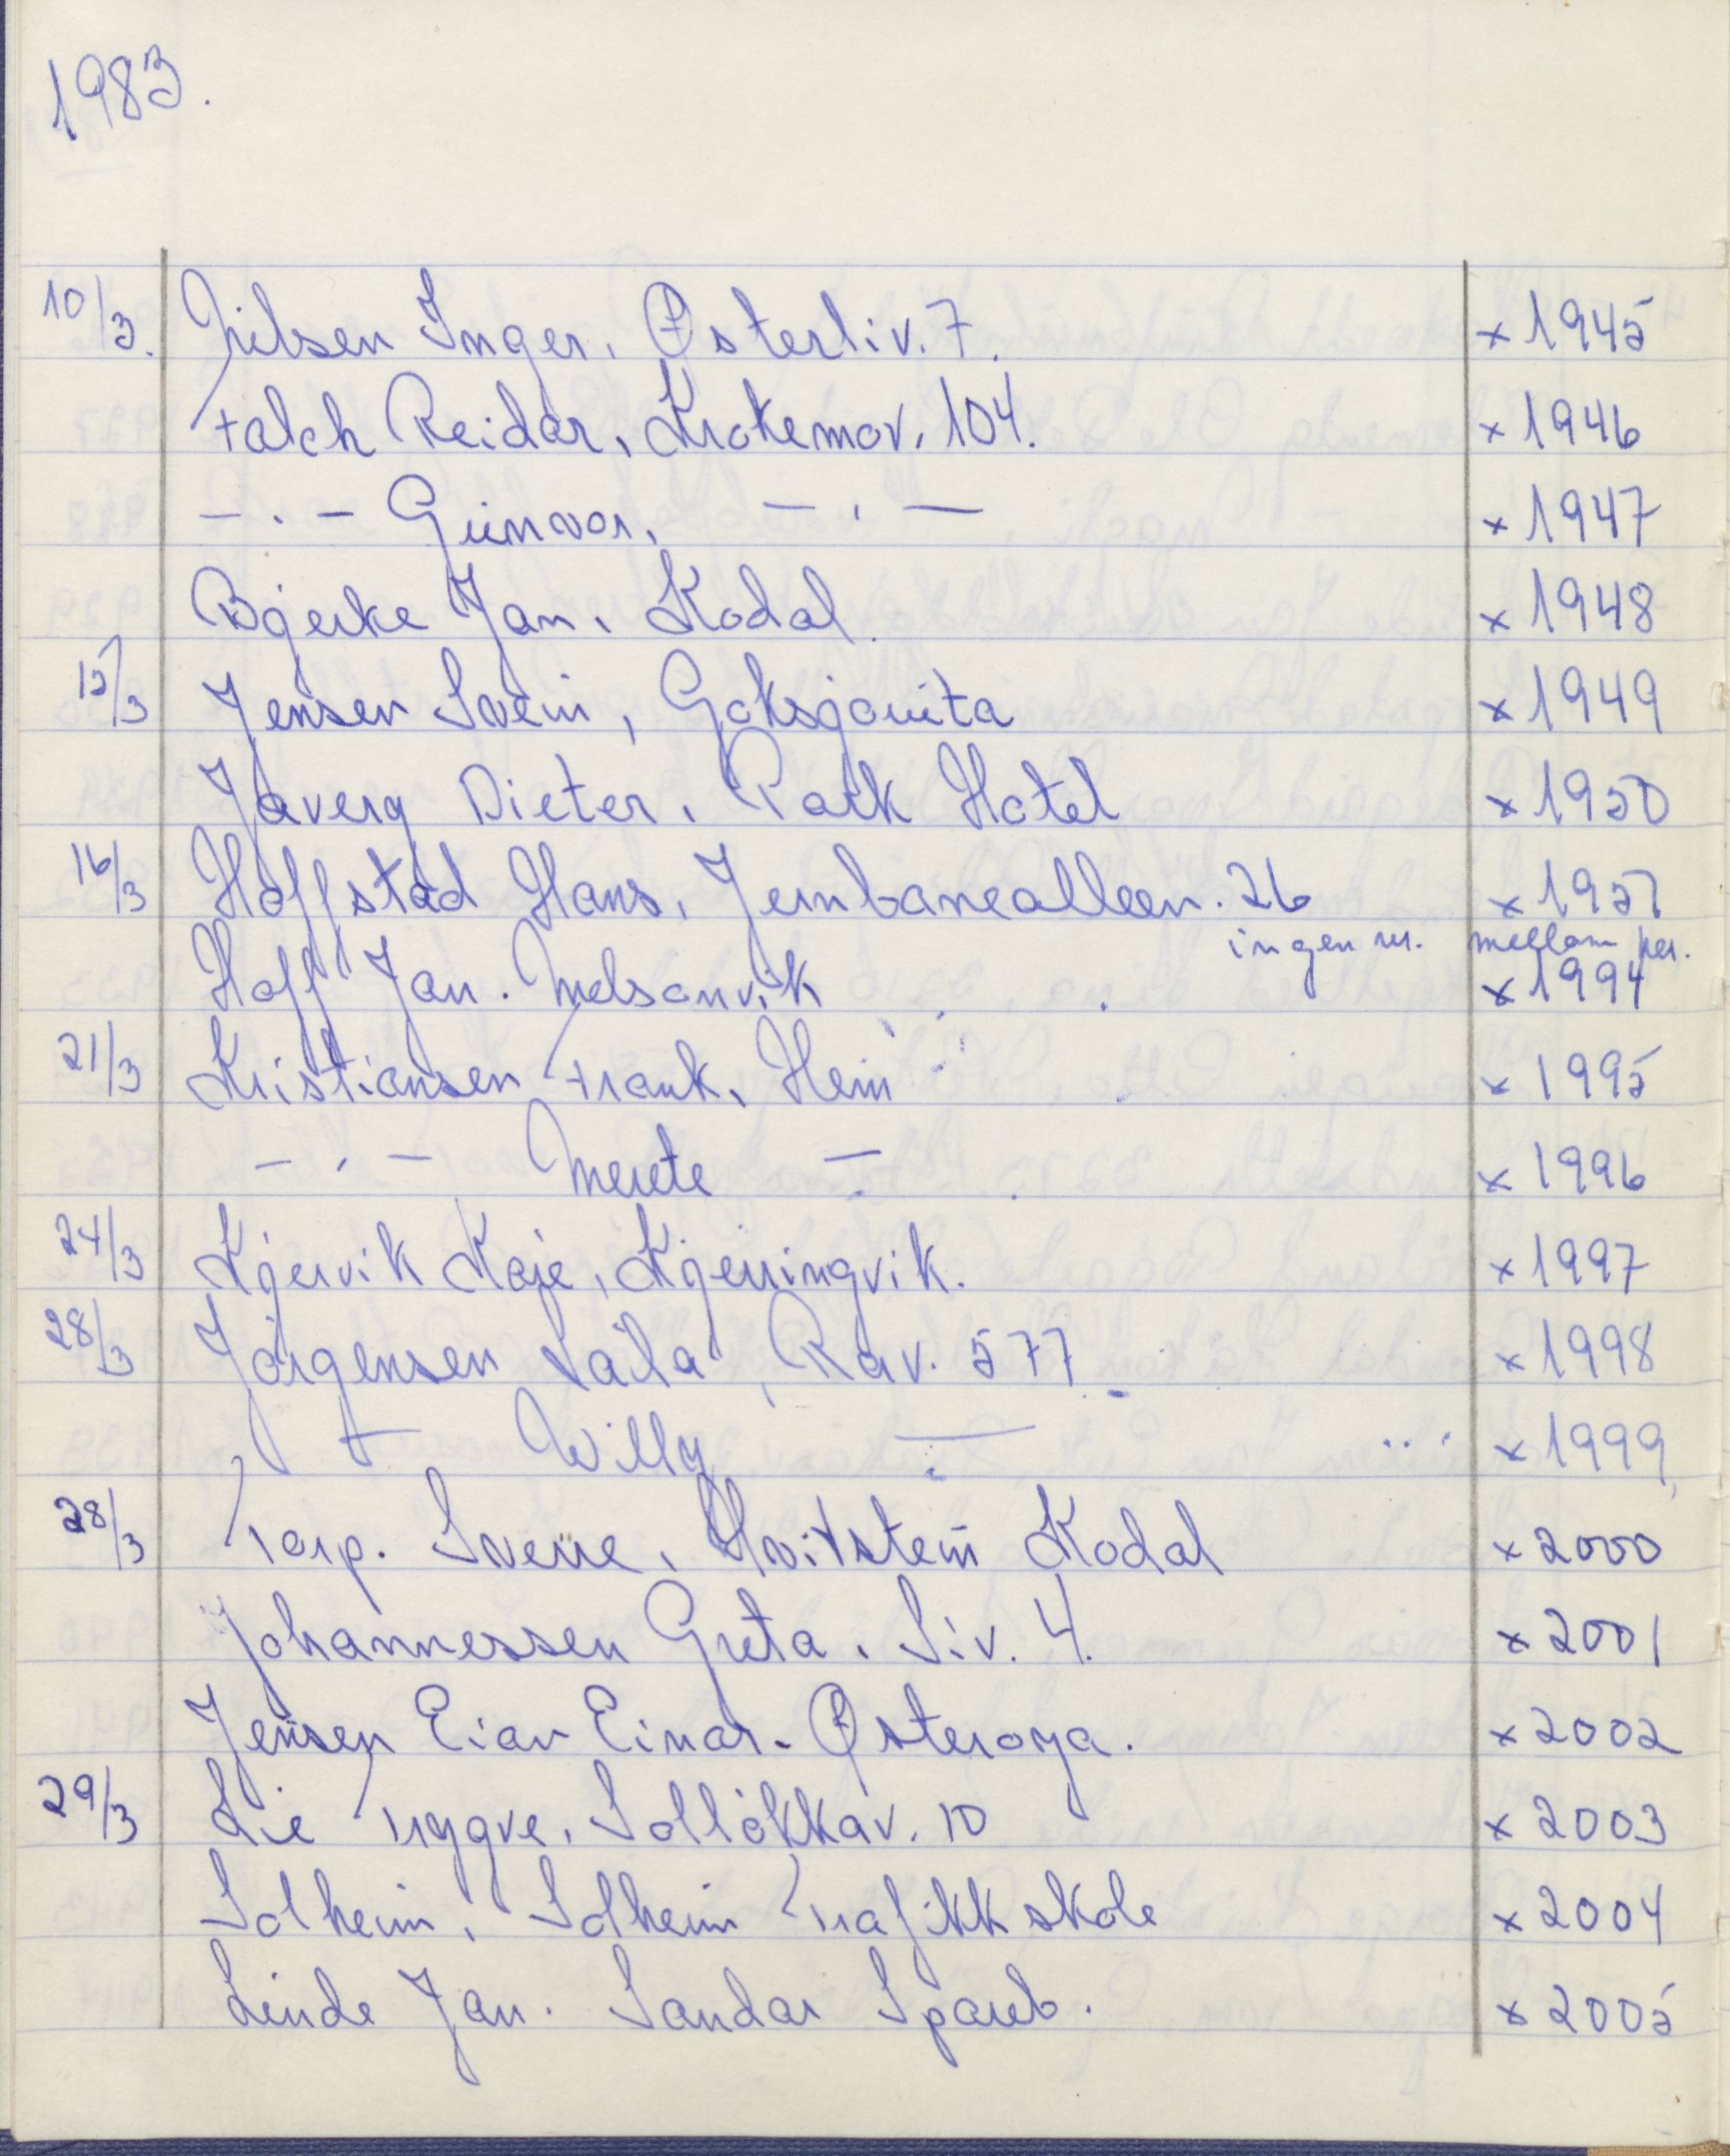 1983.
10/3. Nilsen Inger, Østerliv. 7. x 1945
Falch Reidar, Krokemov. 104. x 1946
— . — Gunvor, — . — x 1947
Bjerke Jan, Kodal. x 1948
15/3 Jensen Svein, Goksjøruta x 1949
Javerg Dieter, Park Hotel x 1950
16/3 Hoffstad Hans, Jernbanealleen. 26 x 1951
ingen nr. mellom her.
Hoff Jan. Melsomvik x 1994
21/3 Kristiansen Frank, Hem x 1995
— . — Merete — x 1996
24/3 Kjervik Kaje, Kjerringvik. x 1997
28/3 Jørgensen Laila, Rav. 577 x 1998
— Willy — x 1999
28/3 Torp. Sverre, Hvitstein Kodal x 2000
Johannessen Greta, Liv. 4. x 2001
Jensen Einar. Østerøya. x 2002
29/3 Lie Tryggve, Solløkkav. 10 x 2003
Solheim, Solheim Trafikkskole x 2004
Linde Jan. Sandar Spareb. x 2005